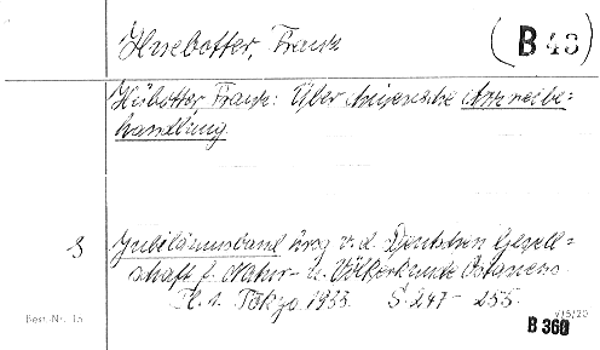 Huebotter, Franz
(B 43)
Hübotter, Franz: Über chinesische Arzneibe=
handlung.
S
Jubiläumsband hrsg v. d. Deutschen Gesell=
schaft f. Natur- u. Völkerkunde Ostasiens
Tl. 1. Tokyo 1933. S. 247-255.
Best.-Nr. 15
V/5/20
B 360